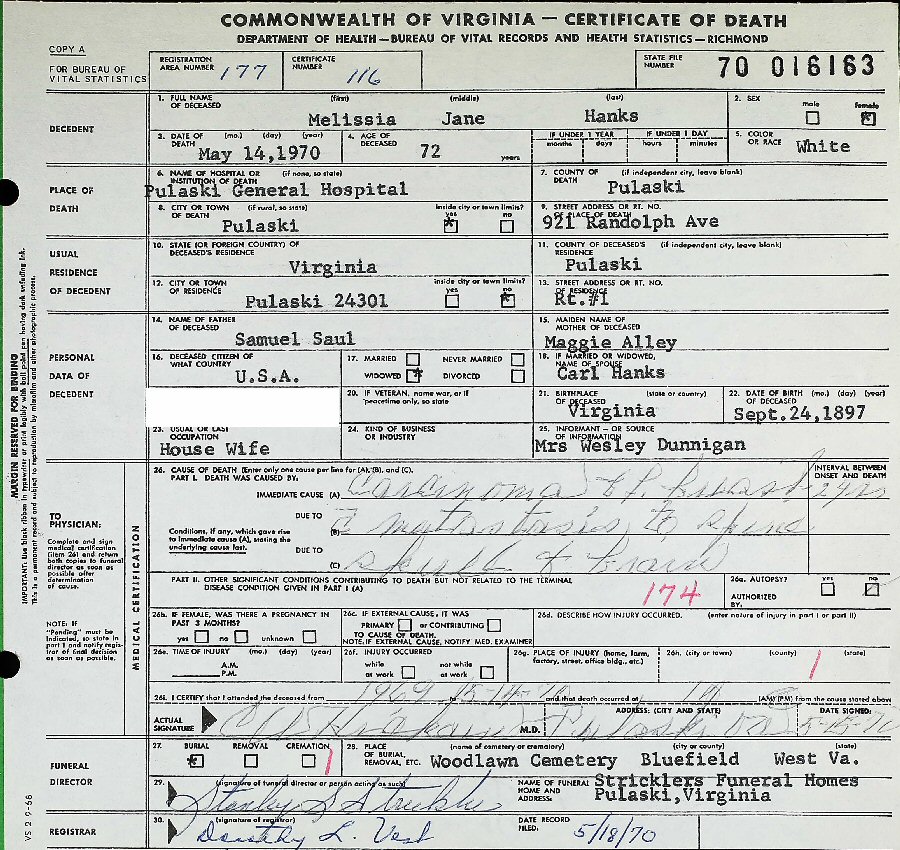 COMMONWEALTH OF VIRGINIA — CERTIFICATE OF DEATH
DEPARTMENT OF HEALTH—BUREAU OF VITAL RECORDS AND HEALTH STATISTICS—RICHMOND
COPY A
FOR BUREAU OF VITAL STATISTICS
REGISTRATION AREA NUMBER 177
CERTIFICATE NUMBER 116
STATE FILE NUMBER 70 016163
DECEDENT
1. FULL NAME OF DECEASED (first) (middle) (last)
Melissia Jane Hanks
2. SEX male female
3. DATE OF DEATH (mo.) (day) (year)
May 14,1970
4. AGE OF DECEASED 72 years
IF UNDER 1 YEAR months days
IF UNDER 1 DAY hours minutes
5. COLOR OR RACE White
PLACE OF DEATH
6. NAME OF HOSPITAL OR INSTITUTION OF DEATH (if none, so state)
Pulaski General Hospital
7. COUNTY OF DEATH (if independent city, leave blank)
Pulaski
8. CITY OR TOWN OF DEATH (if rural, so state)
Pulaski
inside city or town limits? yes no
9. STREET ADDRESS OR RT. NO. OF PLACE OF DEATH
921 Randolph Ave
USUAL RESIDENCE OF DECEDENT
10. STATE (OR FOREIGN COUNTRY) OF DECEASED'S RESIDENCE
Virginia
11. COUNTY OF DECEASED'S RESIDENCE (if independent city, leave blank)
Pulaski
12. CITY OR TOWN OF RESIDENCE
Pulaski 24301
inside city or town limits? yes no
13. STREET ADDRESS OR RT. NO. OF RESIDENCE
Rt.#1
PERSONAL DATA OF DECEDENT
14. NAME OF FATHER OF DECEASED
Samuel Saul
15. MAIDEN NAME OF MOTHER OF DECEASED
Maggie Alley
16. DECEASED CITIZEN OF WHAT COUNTRY
U.S.A.
17. MARRIED NEVER MARRIED
WIDOWED DIVORCED
18. IF MARRIED OR WIDOWED, NAME OF SPOUSE
Carl Hanks
20. IF VETERAN, name war, or if peacetime only, so state
21. BIRTHPLACE OF DECEASED (state or country)
Virginia
22. DATE OF BIRTH OF DECEASED (mo.) (day) (year)
Sept.24,1897
23. USUAL OR LAST OCCUPATION
House Wife
24. KIND OF BUSINESS OR INDUSTRY
25. INFORMANT - OR SOURCE OF INFORMATION
Mrs Wesley Dunnigan
TO PHYSICIAN:
Complete and sign medical certification (item 26) and return both copies to funeral director as soon as possible after determination of cause.
NOTE: IF "Pending" must be indicated, so state in part I and notify registrar of final decision as soon as possible.
MEDICAL CERTIFICATION
26. CAUSE OF DEATH (Enter only one cause per line for (A),(B), and (C).
PART I. DEATH WAS CAUSED BY:
INTERVAL BETWEEN ONSET AND DEATH
IMMEDIATE CAUSE (A) Carcinoma of Breast
DUE TO
Conditions, if any, which gave rise to immediate cause (A), stating the underlying cause last.
(B) metastasis to spine
DUE TO
(C) skull & brain
PART II. OTHER SIGNIFICANT CONDITIONS CONTRIBUTING TO DEATH BUT NOT RELATED TO THE TERMINAL DISEASE CONDITION GIVEN IN PART I (A)
174
26a. AUTOPSY? yes no
AUTHORIZED BY:
26b. IF FEMALE, WAS THERE A PREGNANCY IN PAST 3 MONTHS?
yes no unknown
26c. IF EXTERNAL CAUSE, IT WAS
PRIMARY or CONTRIBUTING
TO CAUSE OF DEATH.
NOTE, IF EXTERNAL CAUSE, NOTIFY MED. EXAMINER
26d. DESCRIBE HOW INJURY OCCURRED. (enter nature of injury in part I or part II)
26e. TIME OF INJURY (mo.) (day) (year)
A.M.
P.M.
26f. INJURY OCCURRED
while at work not while at work
26g. PLACE OF INJURY (home, farm, factory, street, office bldg., etc.)
26h. (city or town) (county) (state)
26i. I CERTIFY that I attended the deceased from 1969 to 5-14-70 and that death occurred at (AM)(PM) from the cause stated above
ACTUAL SIGNATURE M.D.
ADDRESS: (CITY AND STATE) Pulaski Va
DATE SIGNED:
FUNERAL DIRECTOR
27. BURIAL REMOVAL CREMATION
28. PLACE OF BURIAL, REMOVAL, ETC. (name of cemetery or crematory) (city or county) (state)
Woodlawn Cemetery Bluefield West Va.
29. (signature of funeral director or person acting as such)
NAME OF FUNERAL HOME AND ADDRESS:
Stricklers Funeral Homes
Pulaski,Virginia
REGISTRAR
30. (signature of registrar)
Dorothy L. Vest
DATE RECORD FILED: 5/18/70
MARGIN RESERVED FOR BINDING
IMPORTANT: Use black ribbon in typewriter or print legibly with ball point pen having dark unfading ink.
This is a permanent record and subject to reproduction by microfilm and other photographic process.
VS 2 9-68